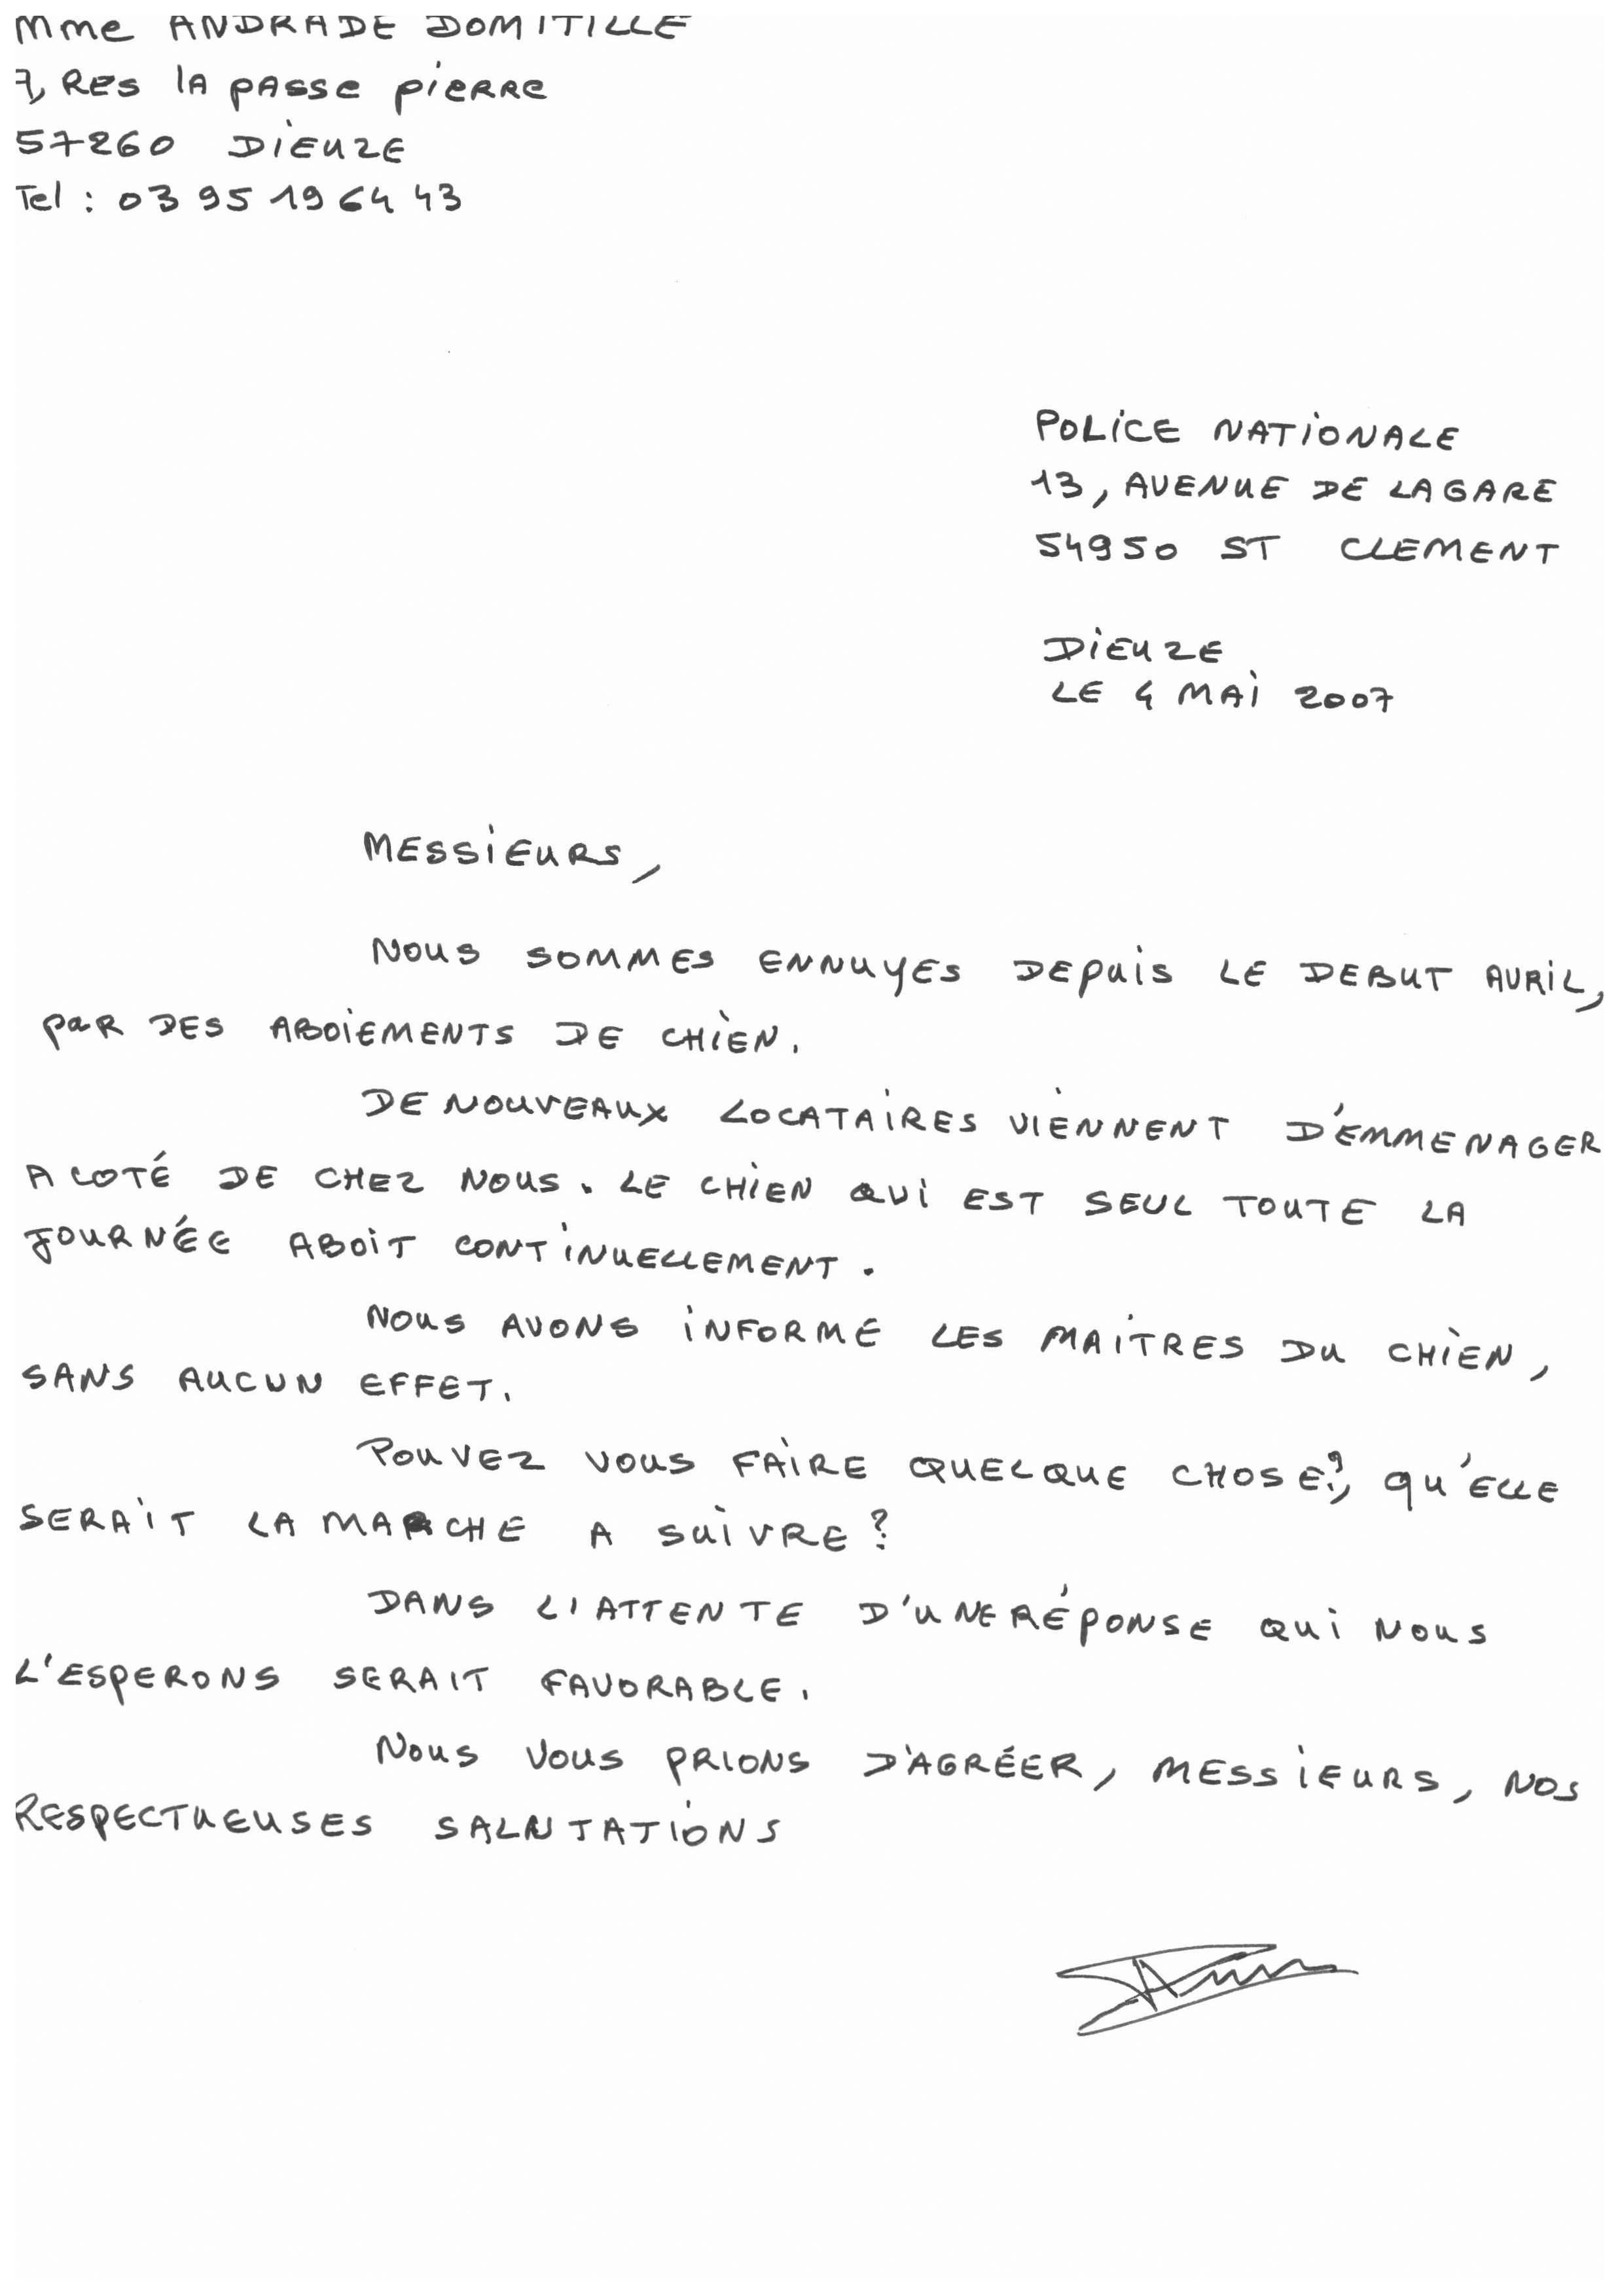 Mme ANDRADE DOMITILLE
7, RES lA pASSe pieRRe
57260 DiEUZE
Tel : 03 95 19 64 43
POLiCE NATiONALE
13, AVENUE DE LA GARE
54950 ST CLEMENT
DiEUZE
LE 4 MAi 2007
MESSiEURS,
NOUS SOMMES ENNUYES DEPUiS LE DEBUT AVRiL,
paR DES ABOiEMENTS DE CHiEN.
DE NOUVEAUX LOCATAiRES ViENNENT D'EMMENAGER
A COTÉ DE CHEZ NOUS. LE CHiEN QUi EST SEUL TOUTE LA
JOURNÉE ABOiT CONTiNUELLEMENT.
NOUS AVONS iNFORME LES MAiTRES DU CHiEN,
SANS AUCUN EFFET.
POUVEZ VOUS FAiRE QUELQUE CHOSE?, qU'ELLE
SERAiT LA MARCHE A SUiVRE?
DANS L'ATTENTE D'UNE RÉPONSE QUi NOUS
L'ESPERONS SERAIT FAVORABLE.
NOUS VOUS PRIONS D'AGRÉER, MESSiEURS, NOS
RESPECTUEUSES SALUTATiONS